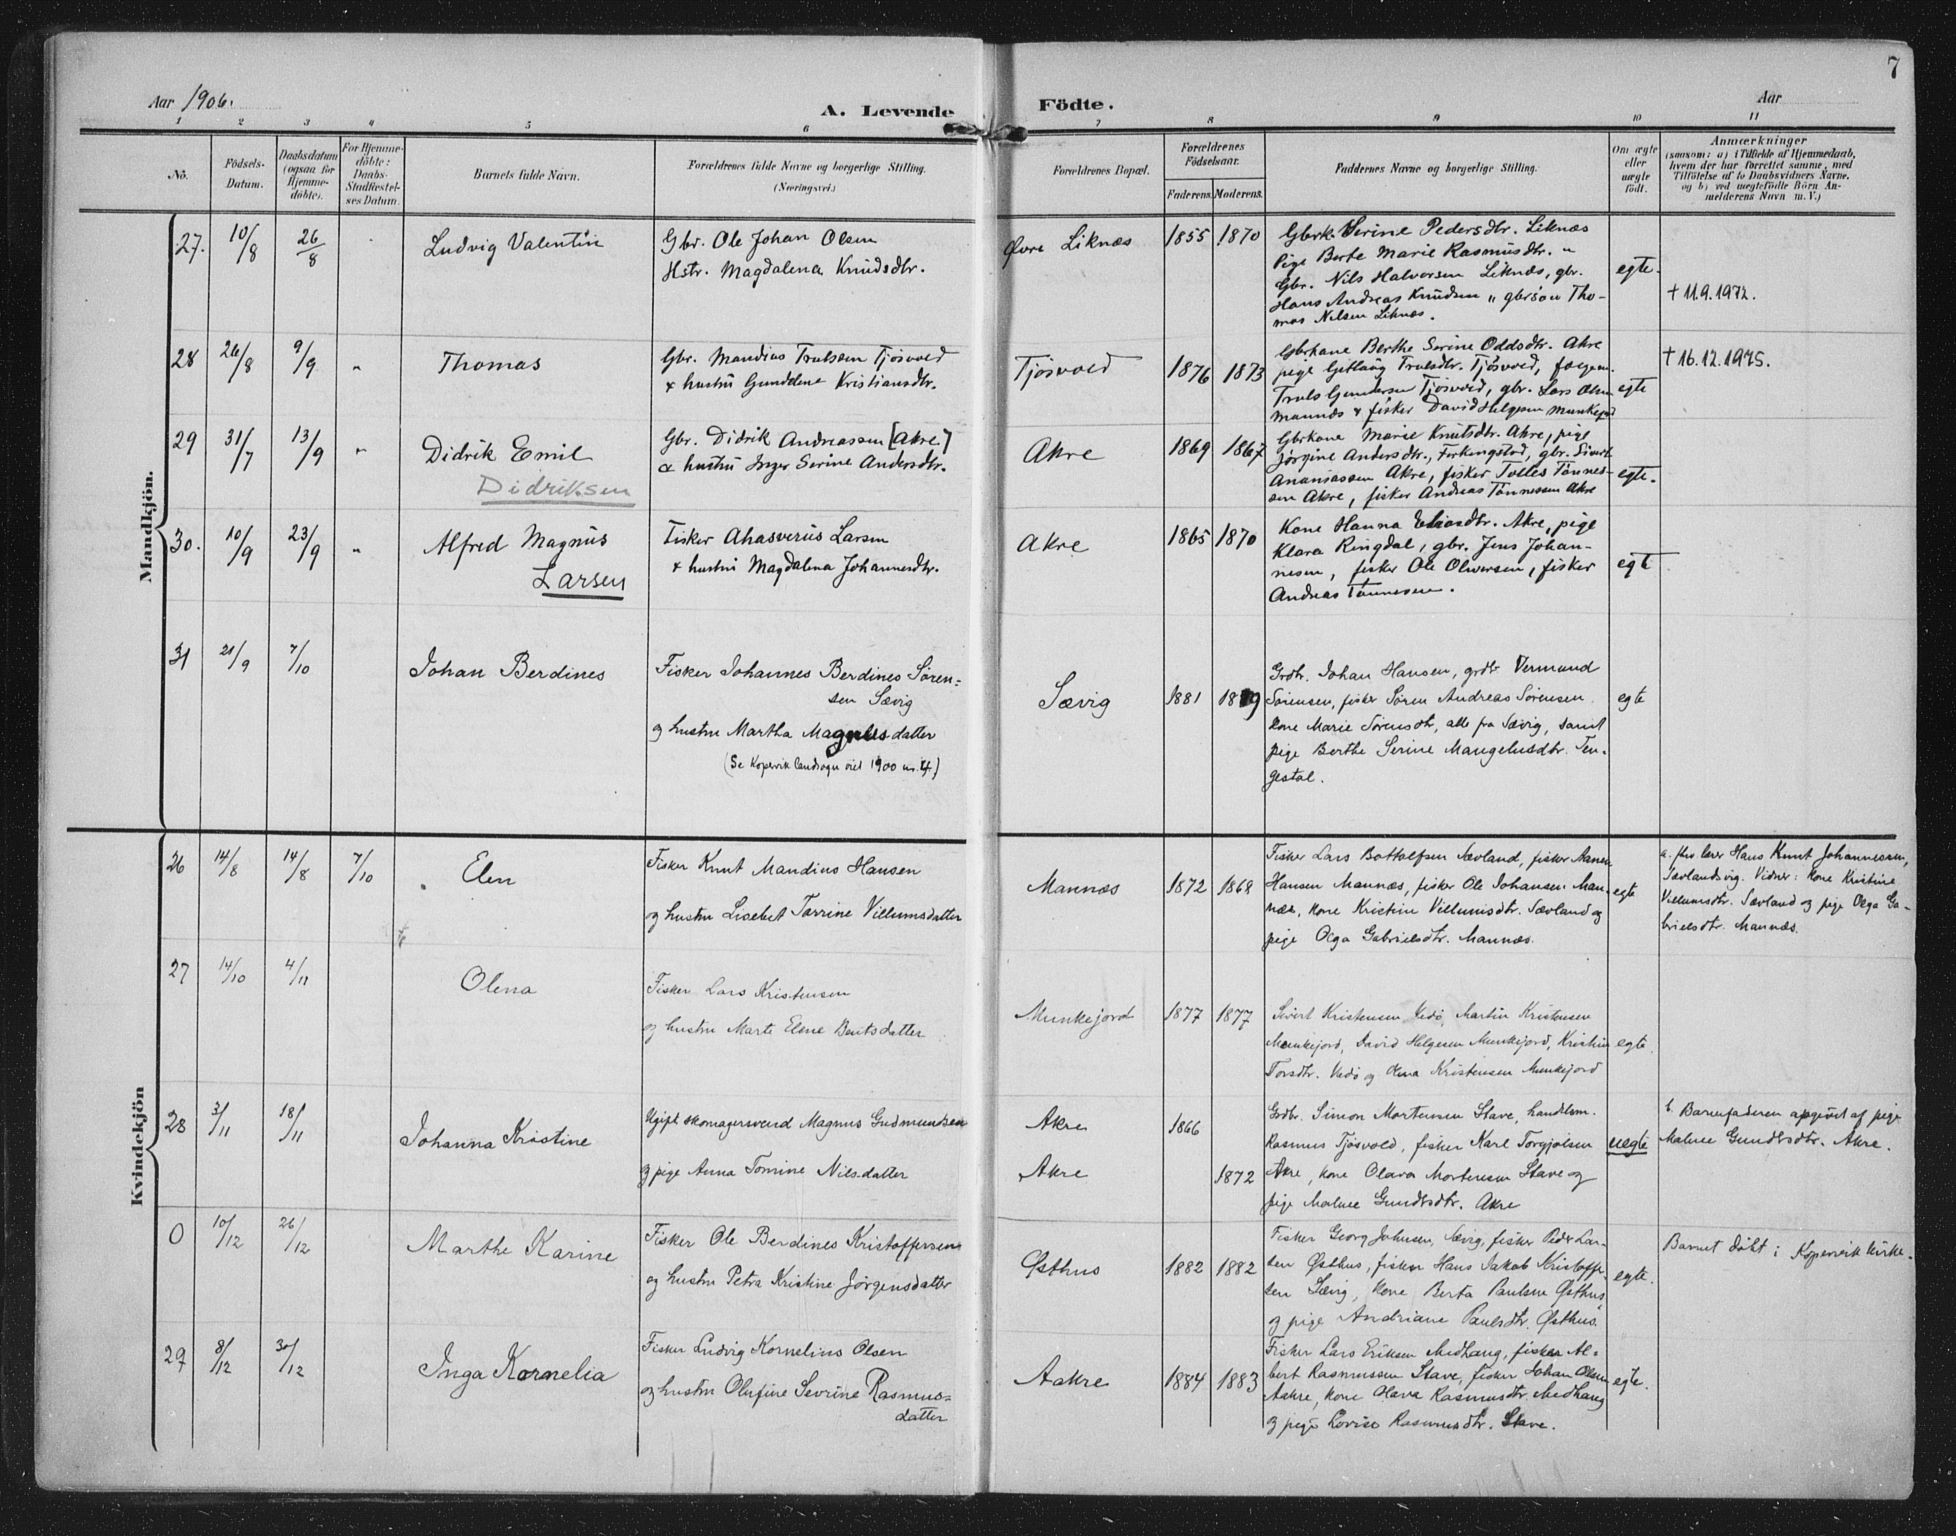 7
Aar 1906.
A. Levende Födte.
Aar
1 2 3 4 5 6 7 8 9 10 11
No.
Födsels-Datum.
Daabsdatum (ogsaa for Hjemme-döbte).
For Hjemme-döbte: Daabs-Stadfæstel-ses Datum.
Barnets fulde Navn.
Forældrenes fulde Navne og borgerlige Stilling.
(Næringsvei.)
Forældrenes Bopæl.
Forældrenes Födselsaar.
Faderens. Moderens.
Faddernes Navne og borgerlige Stilling.
Om ægte eller uægte födt.
Anmærkninger
(saasom: a) i Tilfælde af Hjemmedaab,
hvem der har forrettet samme, med
Tilföielse af to Daabsvidners Navne.
og b) ved uægtefödte Börn An-
melderens Navn m. V.)
Mandkjön.
27. 10/8 26/8 Ludvig Valentin
Gbr. Ole Johan Olsen
Hstr. Magdalena Knudsdtr.
Øvre Liknæs 1855 1870
Gbrk. Serine Pedersdtr. Liknæs
Pige Berte Marie Rasmusdtr. "
Gbr. Nils Halvorsen Liknæs, gbr.
Hans Andreas Knudsen " gbrsön Tho-
mas Nilsen Liknæs.
egte.
† 11.9.1972.
28 26/8 9/9 " Thomas
Gbr. Mandius Trulsen Tjösvold
& hustru Gunddene Kristiansdtr.
Tjösvold 1876 1873
Gbrkone Berthe Serine Oddsdtr. Akre
pige Gitlaug Trulsdtr. Tjösvold,
Truls Gundersen Tjösvold, gbr. Lars Olsen
Mannæs & fisker David Helgesen Munkejord
egte
† 16.12.1975.
29 31/7 13/9 " Didrik Emil
Didriksen
Gbr. Didrik Andreassen [Akre]
& hustru Inger Serine Andersdtr.
Akre 1869 1867
Gbrkone Marie Knutsdtr. Akre, pige
Jörgine Andersdtr., Ferkingstad, gbr. Sivert
Ananiassen Akre, fisker Tolles Tönnes-
sen Akre, fisker Andreas Tönnessen Akre
egte.
30. 10/9 23/9 " Alfred Magnus
Larsen
Fisker Ahasverus Larsen
& hustru Magdalena Johannesdtr.
Akre 1865 1870
Kone Hanna Eliasdtr. Akre, pige
Klara Ringdal, gbr. Jens Johan-
nesen, fisker Ole Oliversen, fisker
Andreas Tönnesen.
egte
31 21/9 7/10 Johan Berdines
Fisker Johannes Berdines Sören-
sen Sævig
og hustru Martha Magnusdatter
(Se Kopervik landsogn viet 1900 nr. 4)
Sævig 1881 1879
Grdb. Johan Hansen, grdb Vermund
Sørensen, fisker Søren Andreas Sørensen
kone Marie Sørensdtr, alle fra Sævig, samt
pige Berthe Serine Mangelusdtr. Ten-
gesdal.
egte
Kvindekjön
26 14/8 14/8 7/10 Elen
Fisker Knut Mandius Hansen
og hustru Lisebet Tarrine Villumsdatter
Mannæs 1872 1868
Fisker Lars Bottolfsen Sævland, fisker Aanen
Hansen Mannæs, fisker Ole Johansen Man-
næs, kone Kristine Villumsdtr. Sævland og
pige Olga Gabrielsdtr. Mannæs.
egte
a. lærer Hans Knut Johannessen,
Sævlandsvig. Vidner: kone Kristine
Villumsdtr. Sævland og pige Olga Ga-
brielsdtr. Mannæs.
27 14/10 4/11 Olena
Fisker Lars Kristensen
og hustru Marte Elene Bentsdatter
Munkejord 1877 1877
Sivert Kristensen Vedö, Martin Kristensen
Munkejord, David Helgesen Munkejord, Kristine
Torsdtr. Vedö og Olena Kristensen Munkejord
egte.
28 3/11 18/11 Johanna Kristine
Ugift skomagersvend Magnus Gudmundsen
og pige Anna Tomine Nilsdatter
Akre 1866
Akre 1872
Grdbr. Simon Mortensen Stave, handelsm.
Rasmus Tjösvold, fisker Karl Torgjølsen
Akre, kone Olava Mortensen Stave og
pige Malene Gundersdtr. Akre
uegte
b. Barnefaderen opgivet af pige
Malene Gundersdtr. Akre.
0 10/12 26/12 Marthe Karine
Fisker Ole Berdines Kristoffersen
og hustru Petra Kristine Jørgensdatter
Østhus 1882 1882
Fisker Georg Johnsen, Sævig, fisker Peder Lar-
sen Østhus, fisker Hans Jakob Kristoffer-
sen Sævig, kone Berta Paulsen Østhus
og pige Andriane Paulsdtr. Østhus.
egte.
Barnet döbt i Kopervik kirke.
29 8/12 30/12 Inga Kornelia
Fisker Ludvig Kornelius Olsen
og hustru Olufine Sevrine Rasmus-
datter
Aakre 1884 1883
Fisker Lars Eriksen Medhaug, fisker Al-
bert Rasmussen Stave, fisker Johan Olsen
Aakre, kone Olava Rasmusdtr. Medhaug
og pige Lovise Rasmusdtr. Stave.
egte.